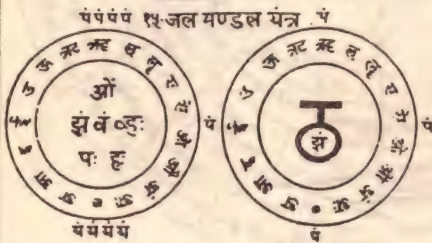 पंपंपंपं १५-जल मण्डल यंत्र पं
अ आ इ ई उ ऊ ऋ ॠ ऌ ॡ ए ऐ ओ औ अं अः
ओं
झं वं व्हः
पः हः
पं
अ आ इ ई उं ऊ ऋ ॠ ऌ ॡ ए ऐ ओ औ अं अः
झं
पं
पंपंपंपं
पं